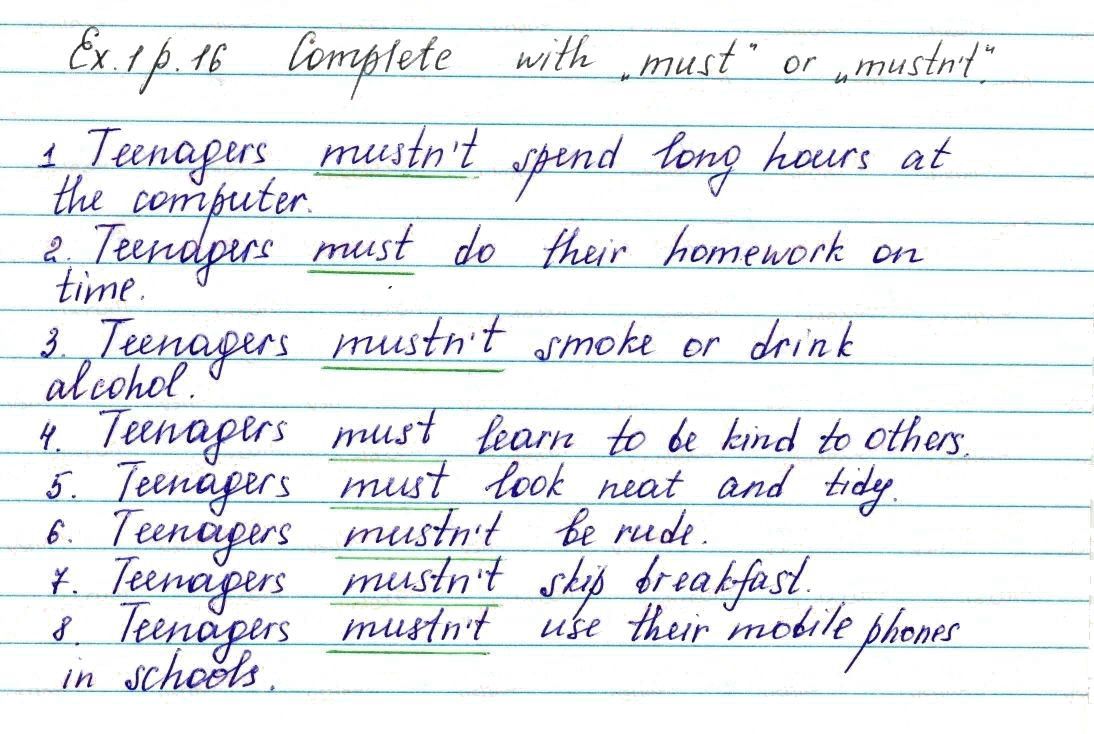 Ex. 1 p. 16 Complete with „must" or „mustn't".
1 Teenagers mustn't spend long hours at
the computer.
2. Teenagers must do their homework on
time.
3. Teenagers mustn't smoke or drink
alcohol.
4. Teenagers must learn to be kind to others.
5. Teenagers must look neat and tidy.
6. Teenagers mustn't be rude.
7. Teenagers mustn't skip breakfast.
8. Teenagers mustn't use their mobile phones
in schools.